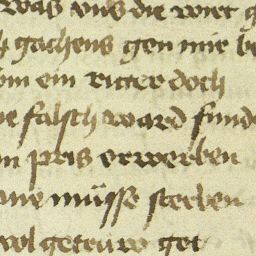 was vns die wirt g
h gachens gen mir be
om ein ritter doch
e falsch ward funde
n pris erwerben
ane müsse sterben
wol getruw get